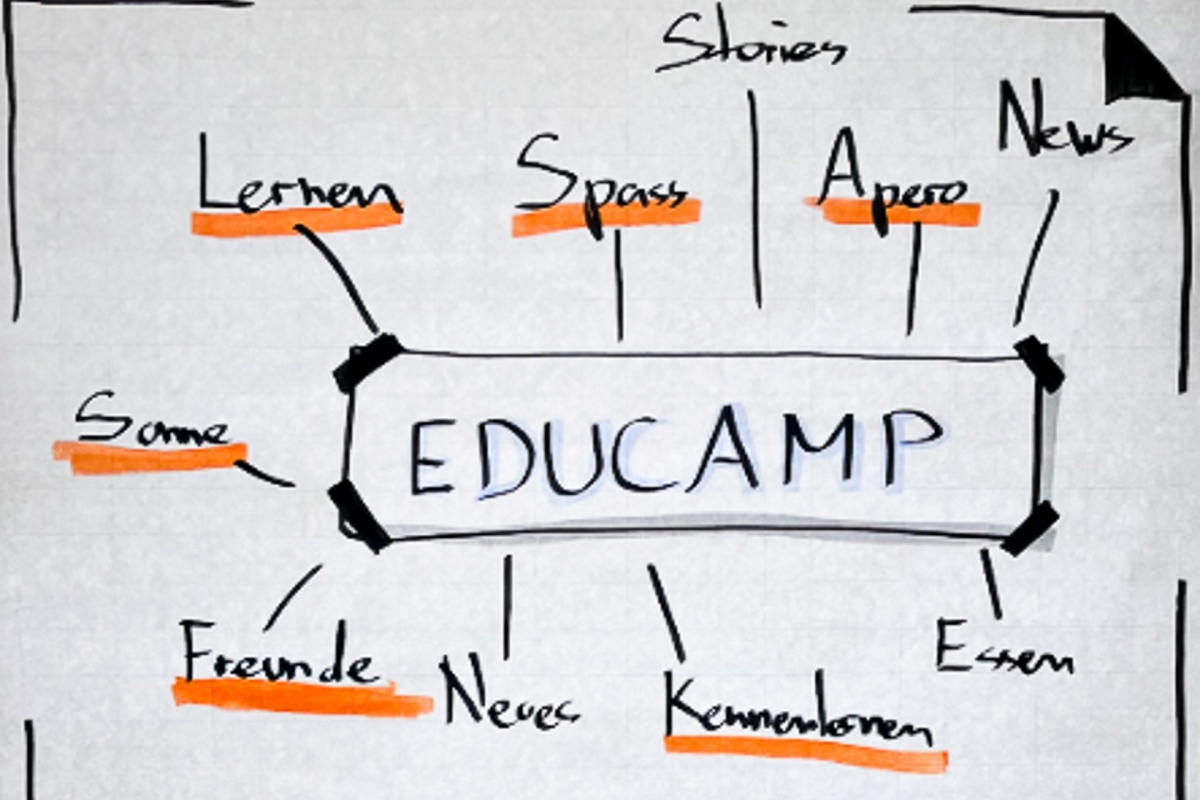 Stories
News
Lernen
Spass
Apero
Sonne
EDUCAMP
Freunde
Neues
Kennenlernen
Essen